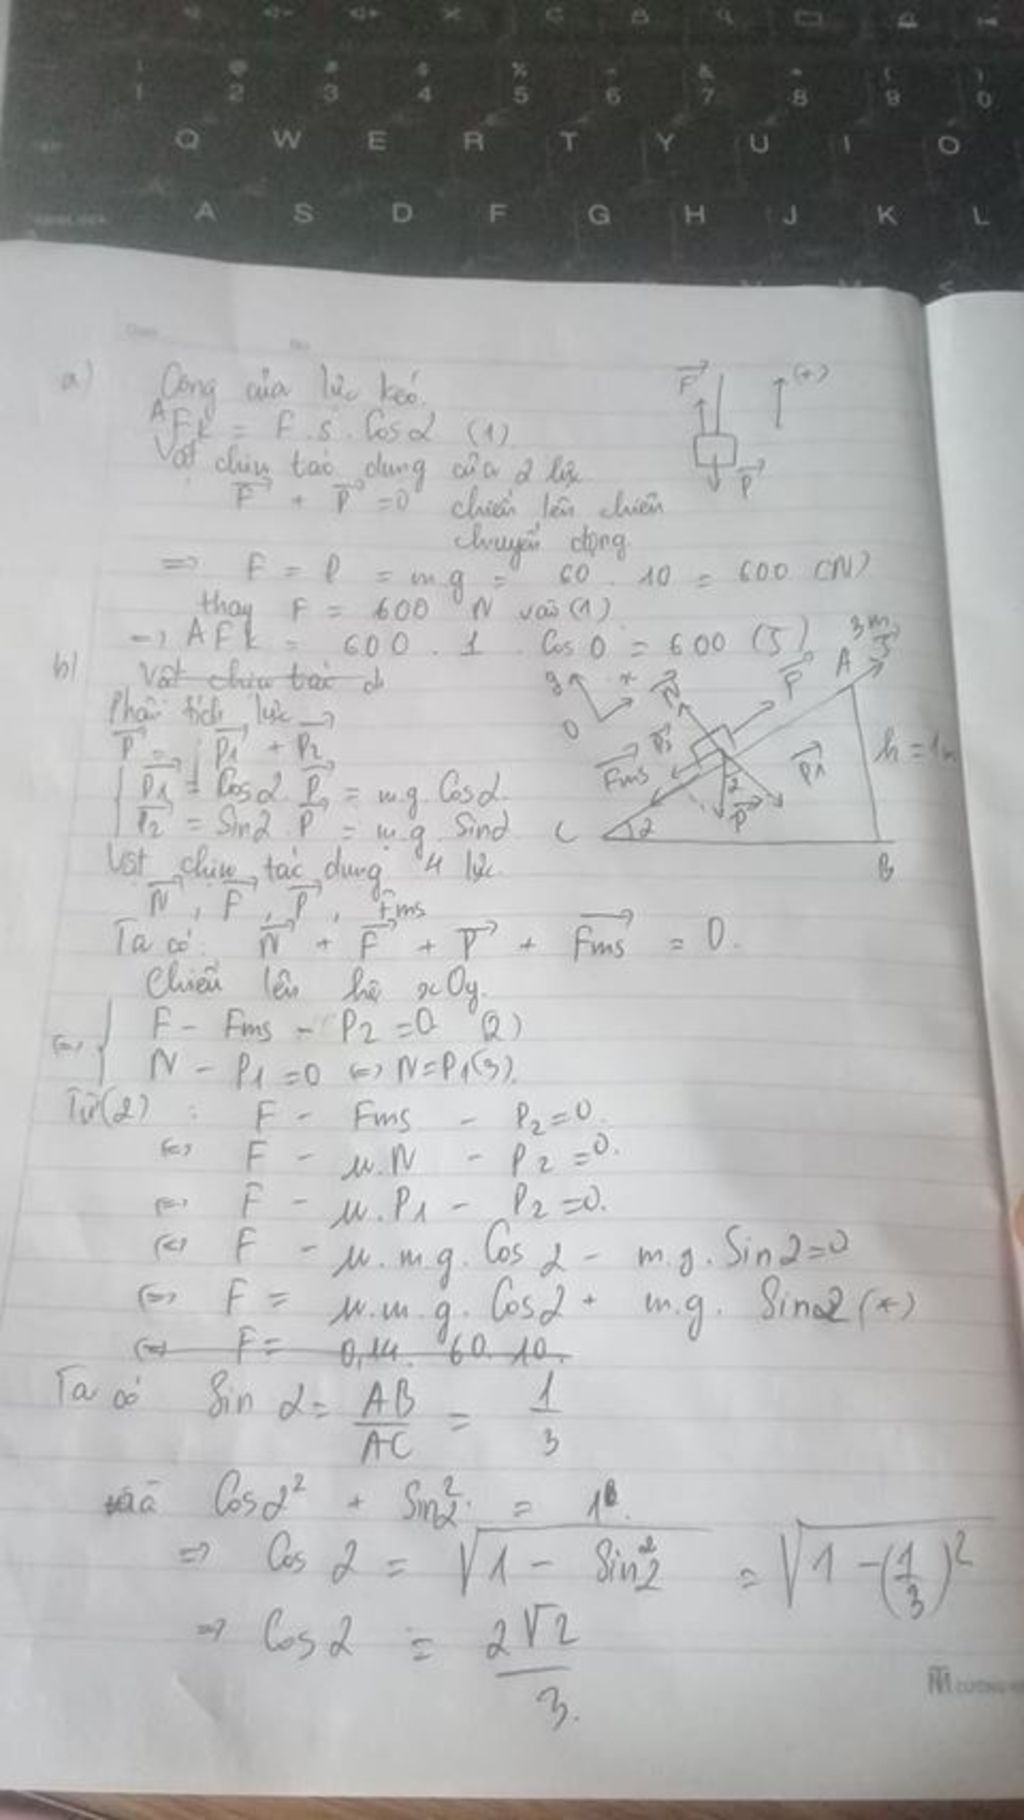 ! @ # $ % & * ( )
1 2 3 4 5 6 7 8 9 0
Q W E R T Y U I O
A S D F G H J K L
a) Công của lực kéo.
AFk = F.s.Cosα (1)
Vật chịu tác dụng của 2 lực
F + P = 0 chiếu lên chiều
chuyển động
=> F = P = m.g = 60 . 10 = 600 (N)
thay F = 600 N vào (1)
=> AFk = 600 . 1 . Cos 0 = 600 (J)
F (+)
P
b) Vật chịu tác d
Phân tích lực
P = P1 + P2
P1 = Cosα. P = m.g. Cosα.
P2 = Sinα. P = m.g. Sinα
3m
y x N F A
O Fms P2 P1 h = 1m
α P
C α B
Vật chịu tác dụng 4 lực
N, F, P, Fms
Ta có: N + F + P + Fms = 0.
Chiếu lên hệ xOy.
<=> F - Fms - P2 = 0 (2)
N - P1 = 0 <=> N = P1 (3).
Từ (2) : F - Fms - P2 = 0.
<=> F - μ.N - P2 = 0.
<=> F - μ.P1 - P2 = 0.
<=> F - μ.m.g. Cos α - m.g. Sin α = 0
<=> F = μ.m.g. Cosα + m.g. Sinα (*)
<=> F = 0,14. 60. 10.
Ta có Sin α = AB/AC = 1/3
Cosα² + Sin²α = 1
=> Cos α = √1 - Sin²α = √1 - (1/3)²
=> Cos α = 2√2/3.